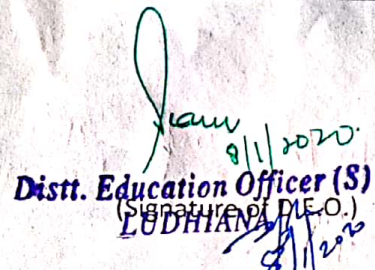 8/1/2020.
Distt. Education Officer (S)
(Signature of D.E.O.)
LUDHIANA
8/1/2020